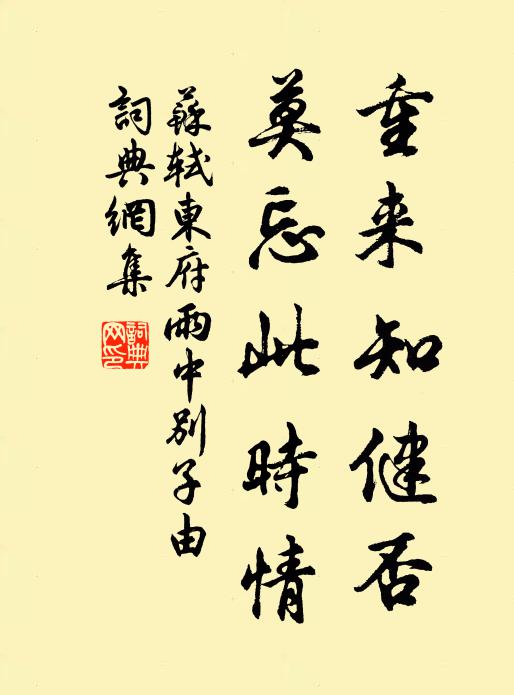 重来知健否
莫忘此時情
蘇軾東府雨中别子由
詞典網集
詞典网印